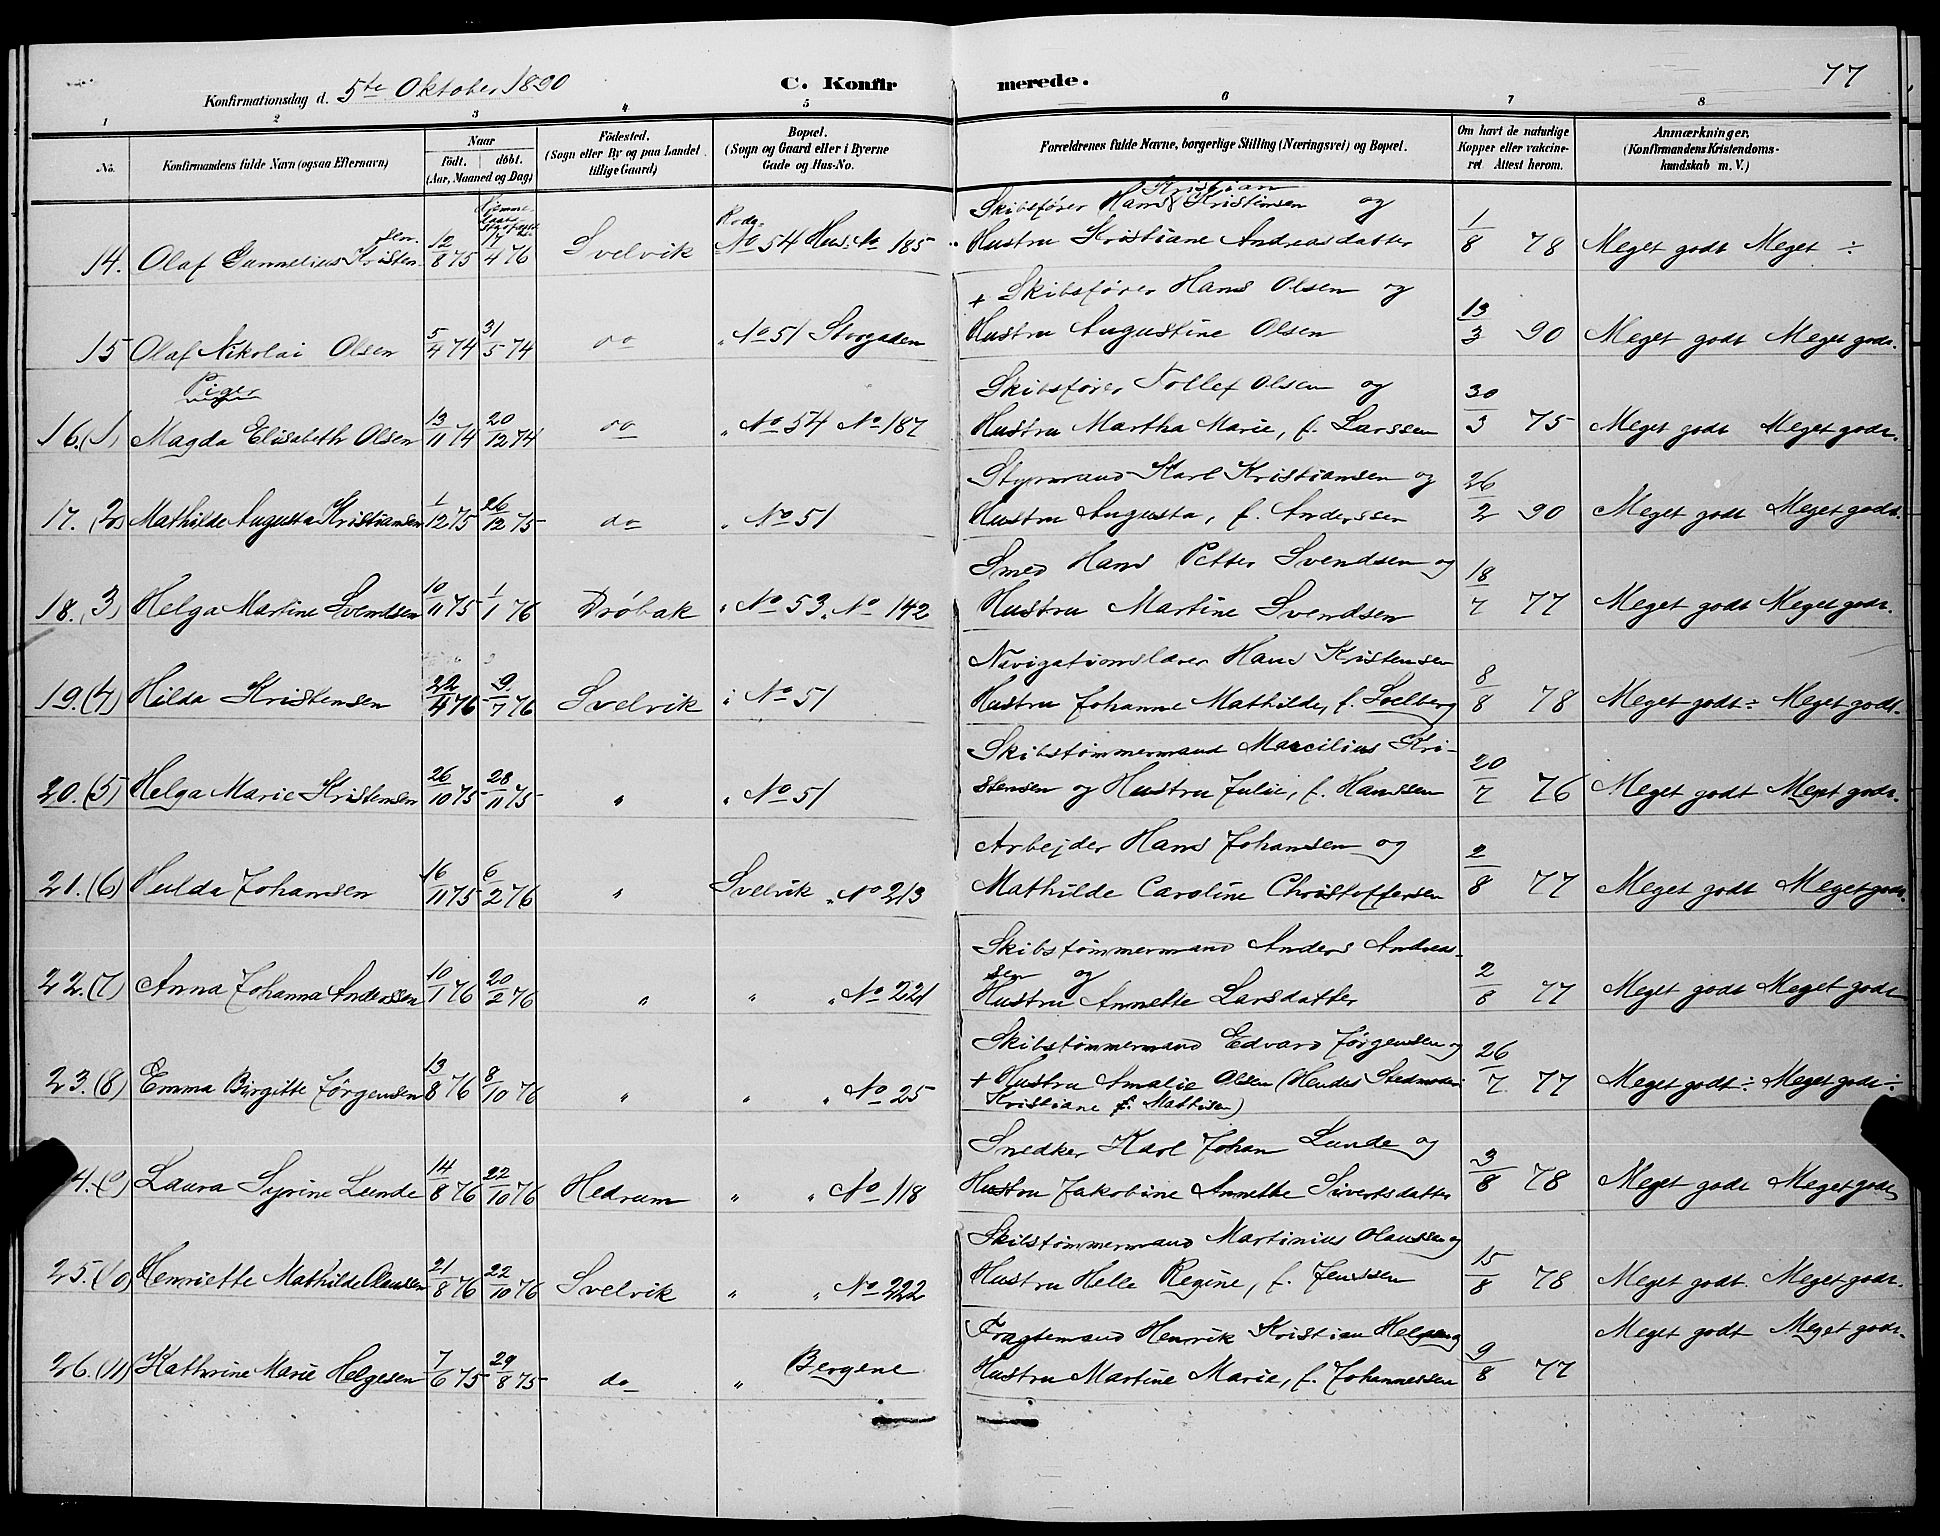 77
Konfirmationsdag d. 5te Oktober 1890 C. Konfir merede.
1 2 3 4 5 6 7 8
No. Konfirmandens fulde Navn (ogsaa Efternavn) Naar født. døbt. (Aar, Maaned og Dag) Fødested. (Sogn eller By og paa Landet tillige Gaard) Bopæl. (Sogn og Gaard eller i Byerne Gade og Hus-No. Forældrenes fulde Navne, borgerlige Stilling (Næringsvei) og Bopæl. Om havt de naturlige Kopper eller vakcineret Attest herom. Anmærkninger. (Konfirmandens Kristendomskundskab m. V.)
Kristian
Skibsfører Hans Kristensen og
14. Olaf Kristen 12/8 75 17/4 76 Svelvik Rode No 54 Hus No 185 Hustru Kristiane Andreasdatter 1/8 78 Meget godt Meget ÷
+ Skibsfører Hans Olsen og
15 Olaf Nikolai Olsen 5/4 74 31/5 74 do " No 51 Storgaden Hustru Augustine Olsen 13/3 90 Meget godt Meget godt.
Piger
Skibsfører Tollef Olsen og
16. (1) Magda Elisabeth Olsen 13/11 74 20/12 74 do " No 54 No 187 Hustru Martha Marie, f. Larssen 30/3 75 Meget godt Meget godt.
Styrmand Karl Kristiansen og
17. (2) Mathilde Augusta Kristiansen 1/12 75 26/12 75 do " No 51 Hustru Augusta, f. Anderssen 26/2 90 Meget godt Meget godt.
Smed Hans Petter Svendsen og
18. (3) Helga Martine Svendsen 10/11 75 1/1 76 Drøbak " No 53 " No 142 Hustru Martine Svendsen 18/7 77 Meget godt Meget godt.
Navigationslærer Hans Kristensen
19. (4) Hilda Kristensen 22/4 76 9/7 76 Svelvik " No 51 Hustru Johanne Mathilde, f. Soelberg 8/8 78 Meget godt ÷ Meget godt.
Skibstømmermand Marcilius Kri-
20. (5) Helga Marie Kristensen 26/10 75 28/11 75 " " No 51 stensen og Hustru Julie, f. Hanssen 20/7 76 Meget godt Meget godt.
Arbejder Hans Johansen og
21. (6) Hulda Johansen 16/11 75 6/2 76 " Svelvik " No 213 Mathilde Caroline Christoffersen 2/8 77 Meget godt Meget godt.
Skibstømmermand Anders Andreas-
sen og
22. (7) Anna Johanna Anderssen 10/1 76 20/2 76 " " " No 221 Hustru Annette Larsdatter 2/8 77 Meget godt Meget godt
Skibstømmermand Edvard Jørgensen og
23. (8) Emma Birgitte Jørgensen 13/8 76 8/10 76 " " " No 25 + Hustru Amalie Olsen (Hendes Stedmoder 26/7 77 Meget godt ÷ Meget godt ÷
Kristiane f. Mathisen)
Snedker Karl Johan Lunde og
4. (9) Laura Syrine Lunde 14/8 76 22/10 76 Hedrum " " No 118 Hustru Jakobine Annette Sivertsdatter 3/8 78 Meget godt Meget godt
Skibstømmermand Martinius Olaussen og
25. (10) Henriette Mathilde Olaussen 21/8 76 22/10 76 Svelvik " " No 222 Hustru Helle Regine, f. Jenssen 15/8 78 Meget godt. Meget godt.
Fragtemand Henrik Kristian Helgesen og Meget godt Meget godt.
26. (11) Kathrine Marie Helgesen 7/6 75 29/8 75 do " Bergene Hustru Martine Marie, f. Johannessen 9/8 77